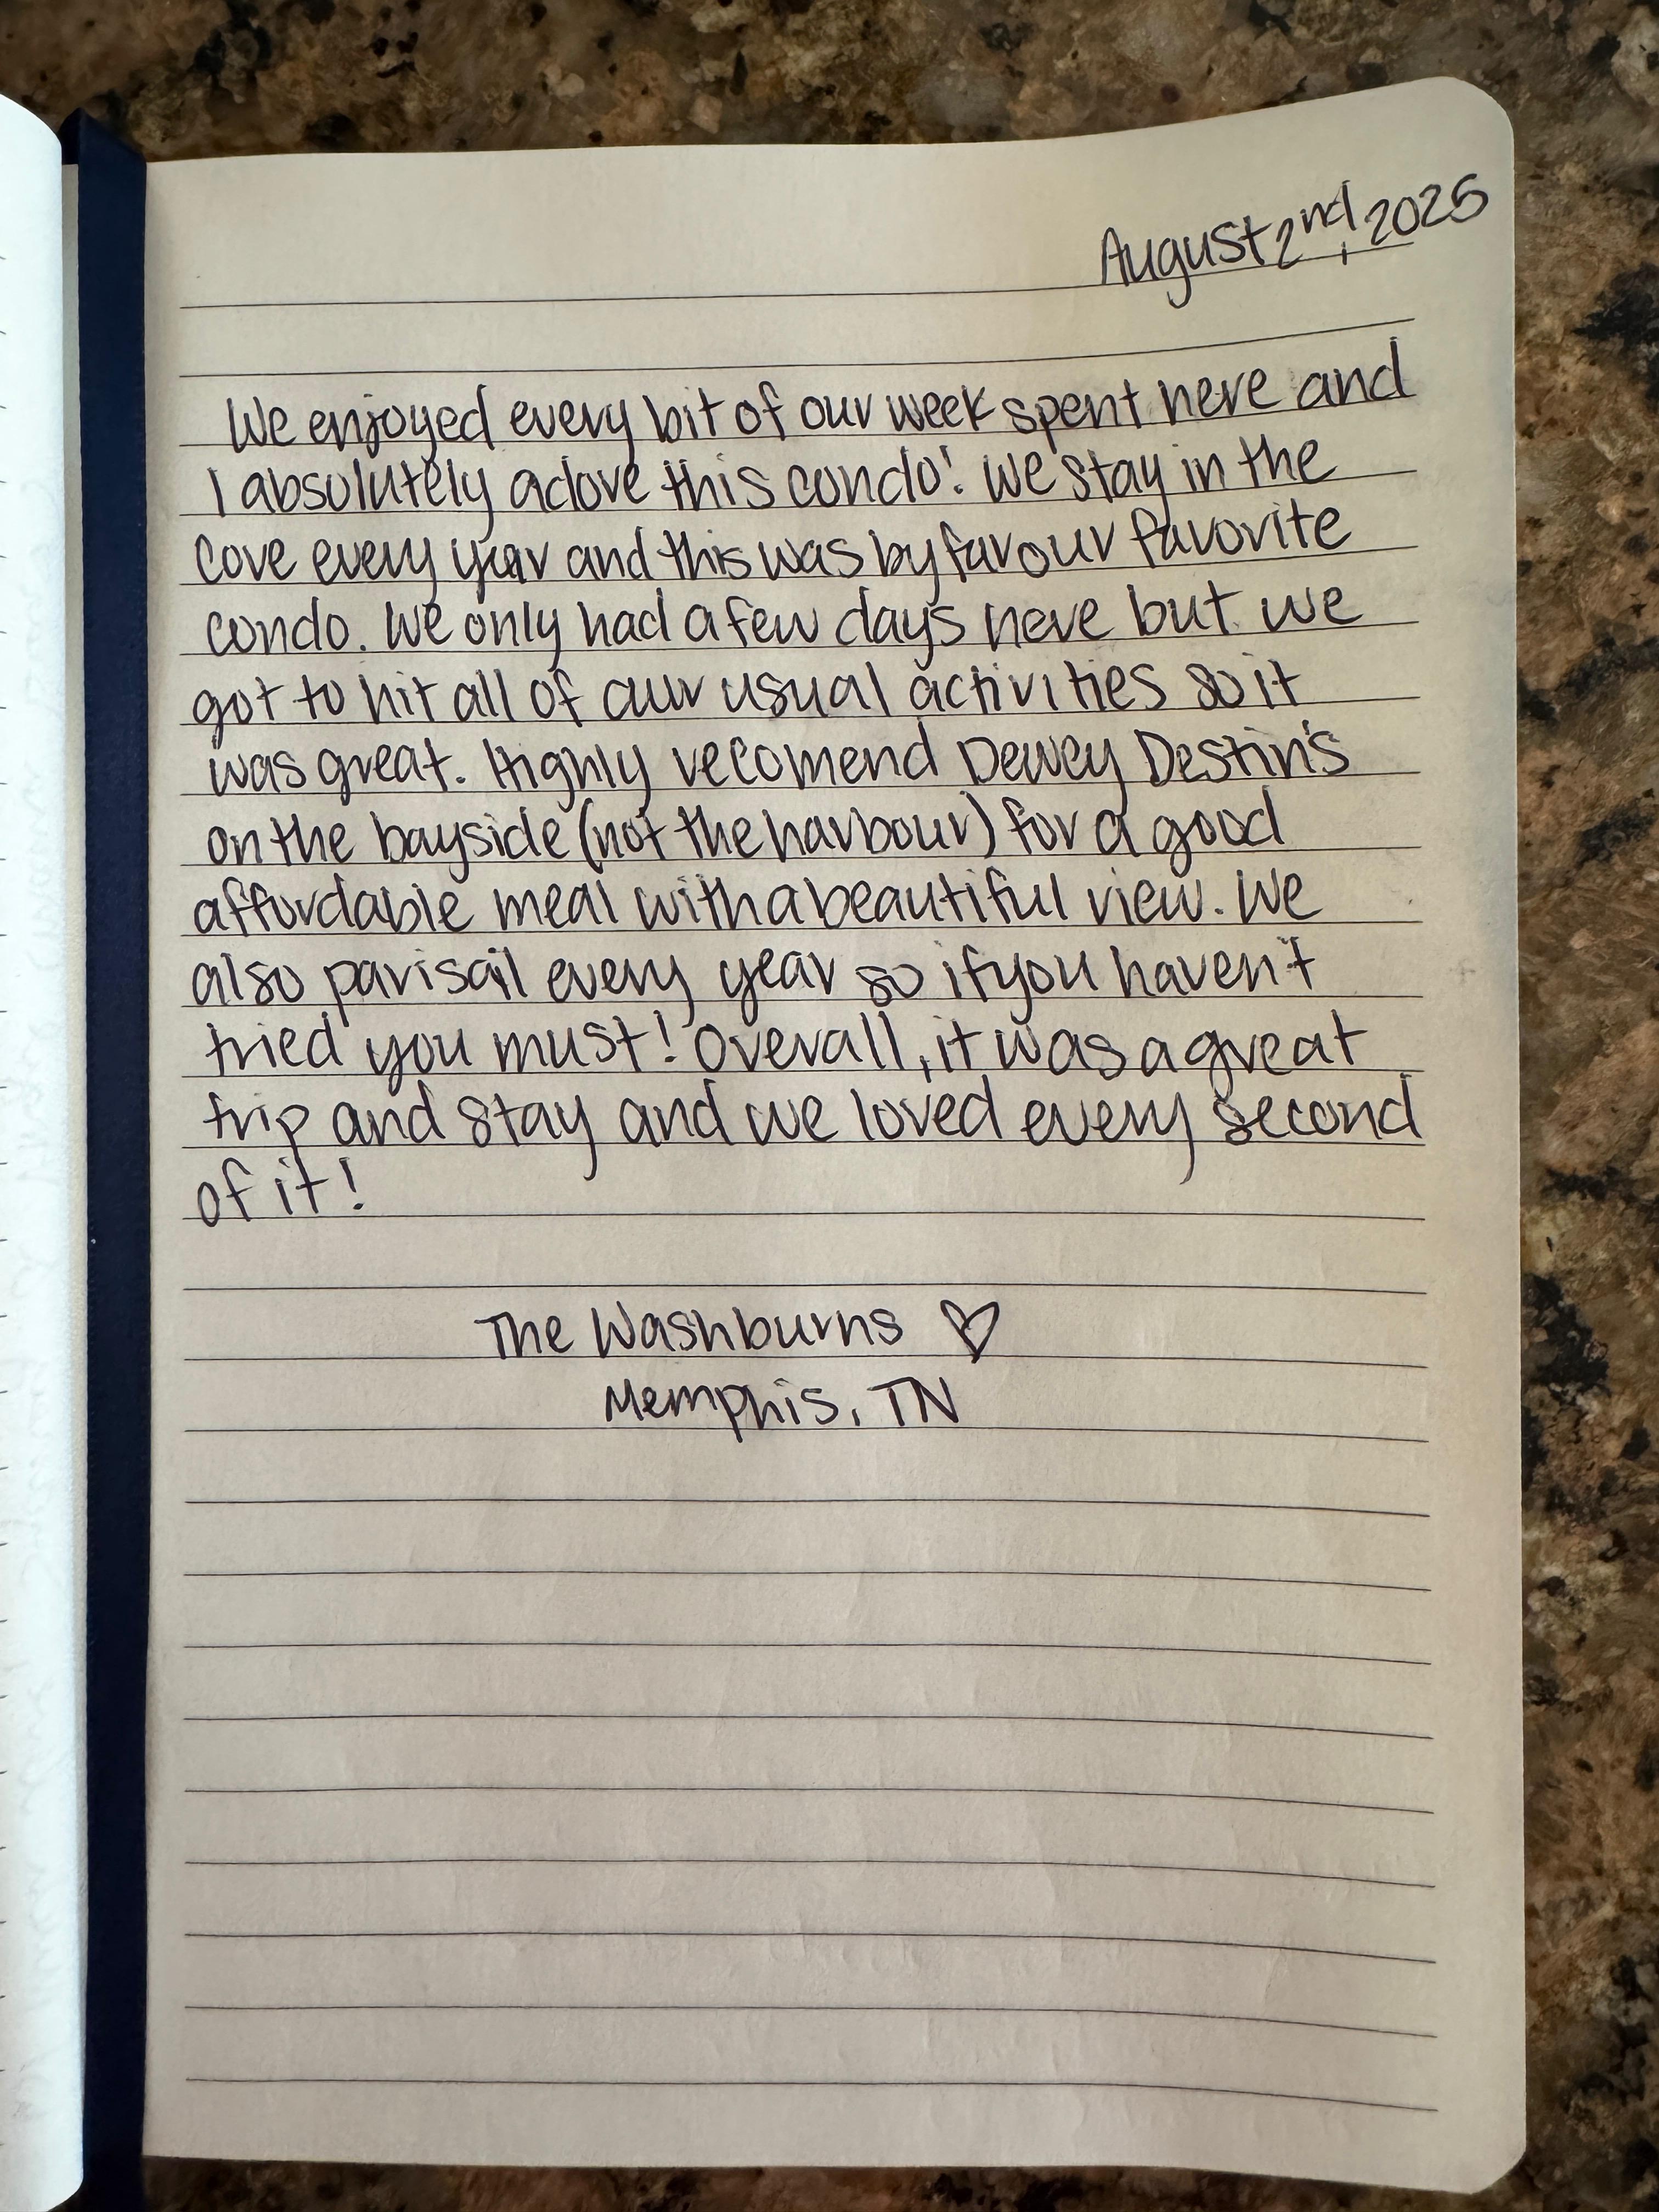 August 2nd, 2025
We enjoyed every bit of our week spent here and
I absolutely adore this condo! We stay in the
cove every year and this was by far our favorite
condo. We only had a few days here but we
got to hit all of our usual activities so it
was great. Highly recomend Dewey Destin's
on the bayside (not the harbour) for a good
affordable meal with a beautiful view. We
also parisail every year so if you haven't
tried you must! Overall, it was a great
trip and stay and we loved every second
of it!
The Washburns ♡
Memphis, TN